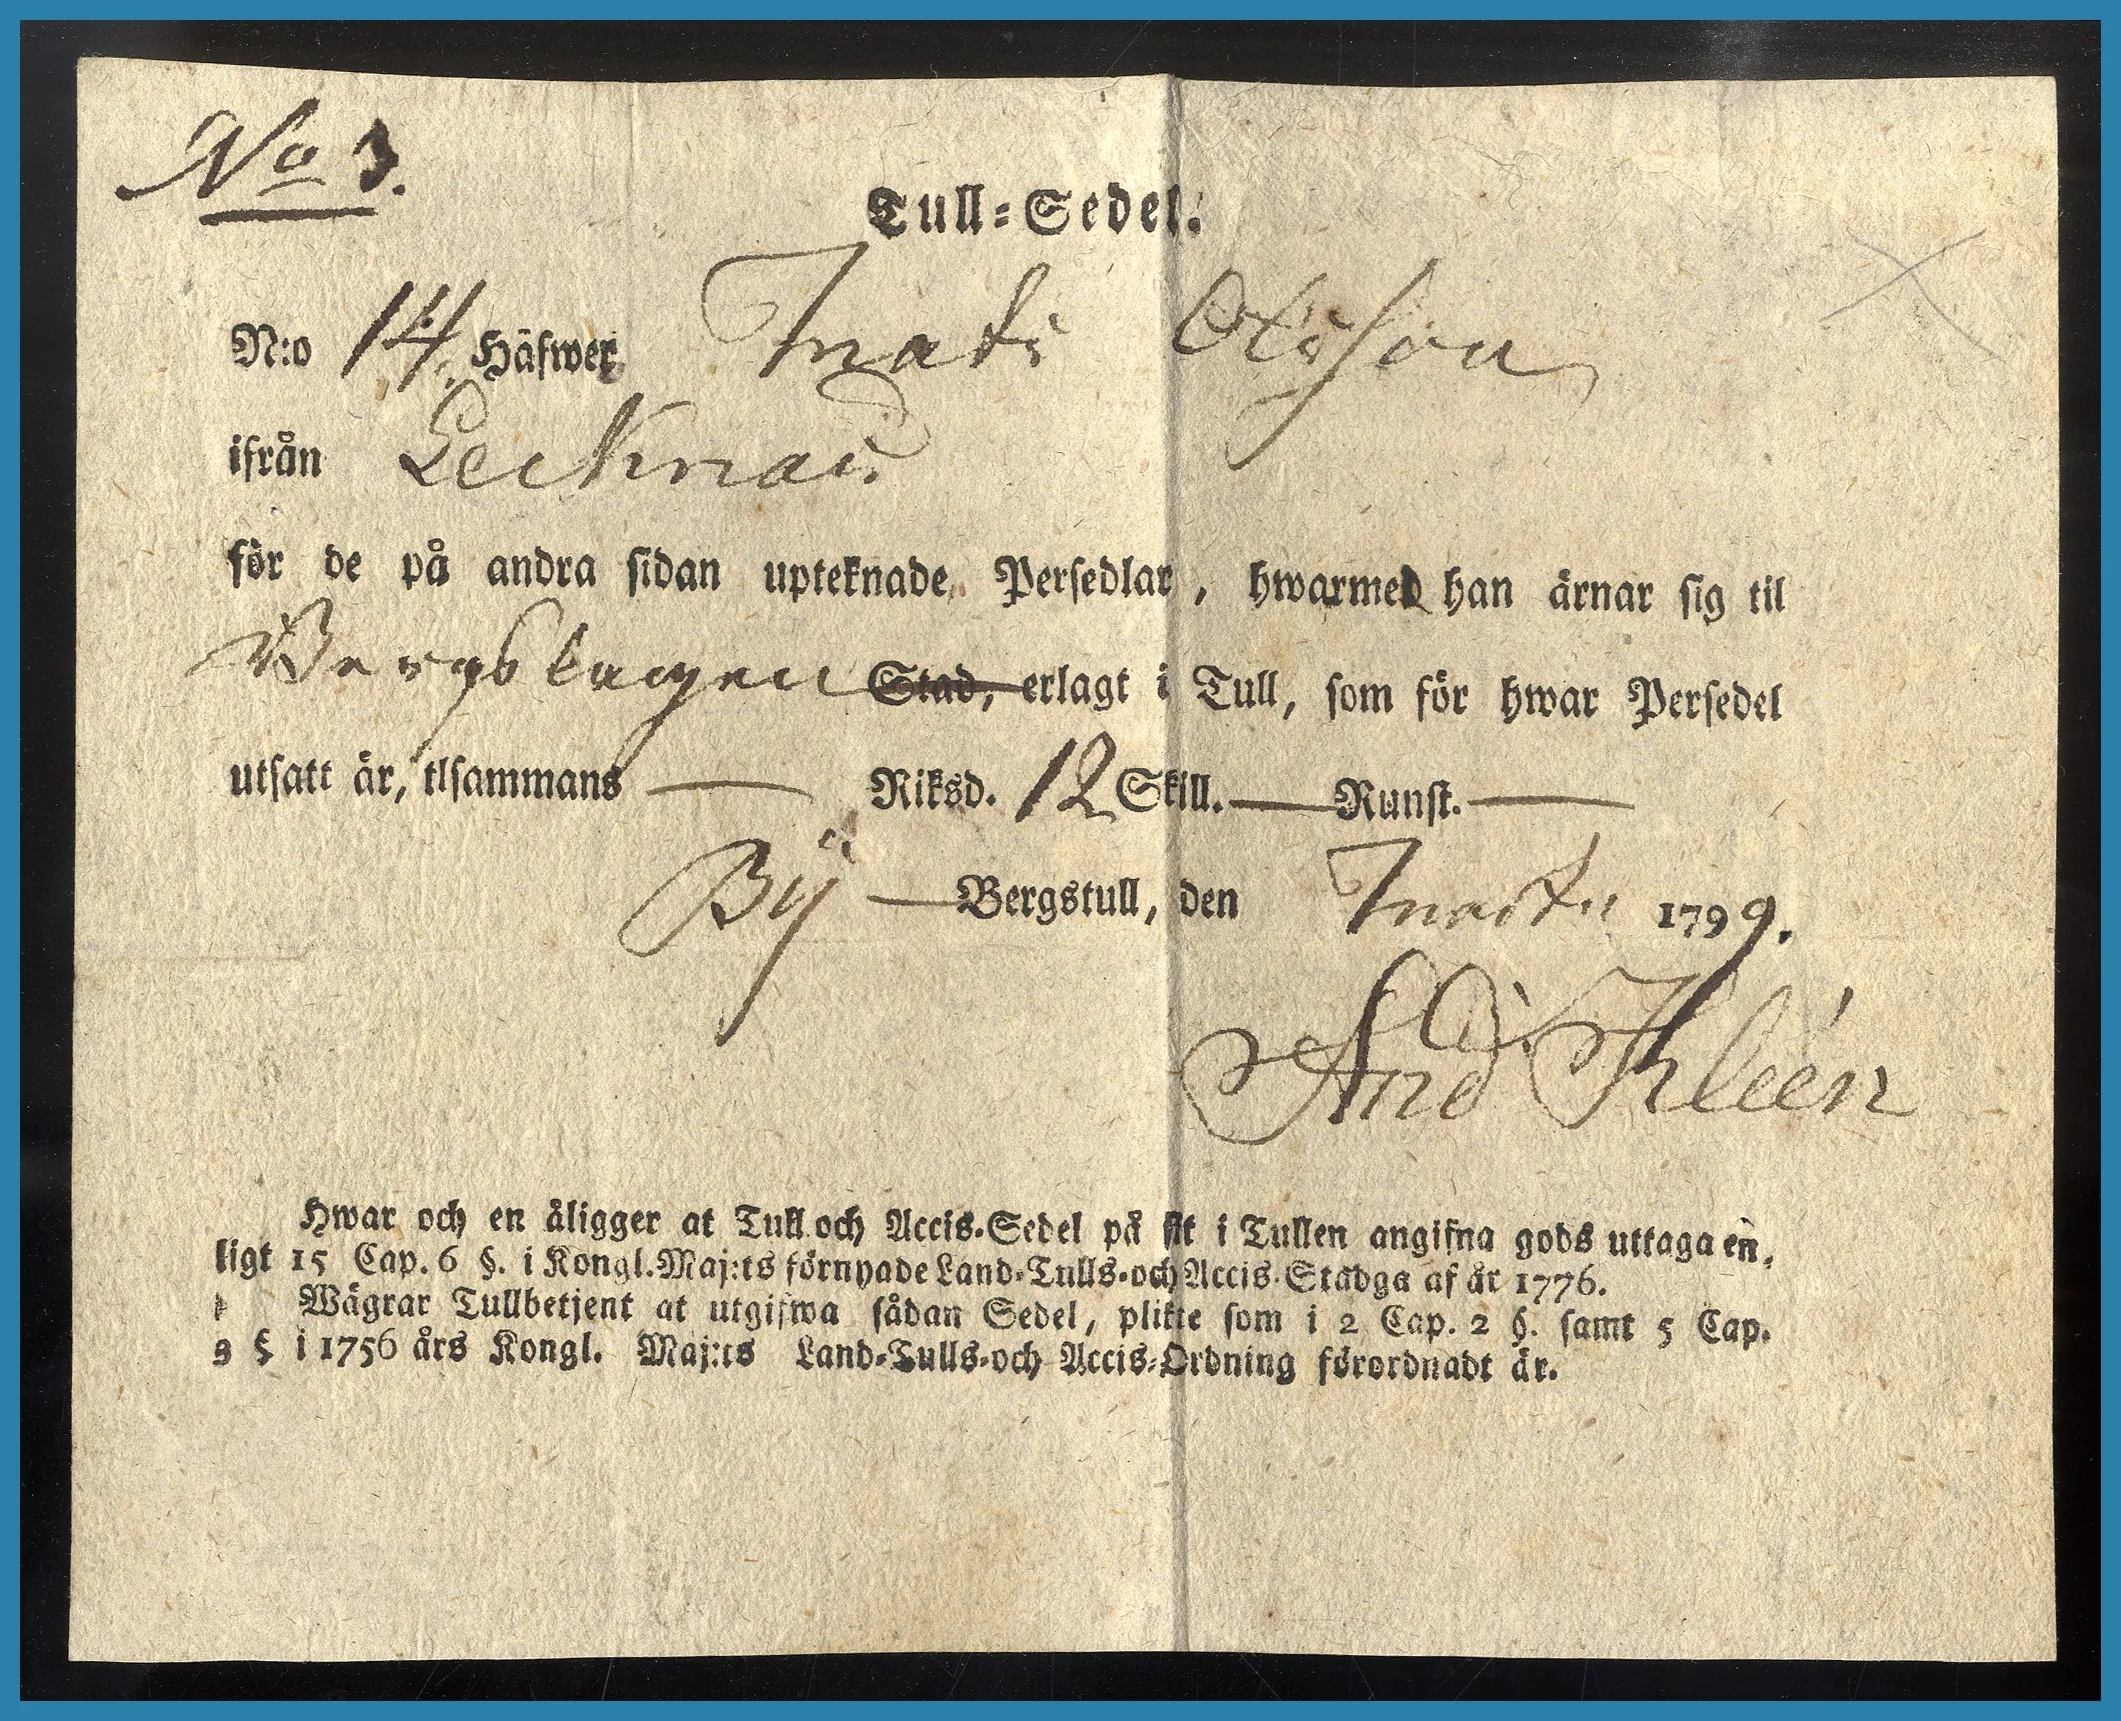 No 3.
Tull-Sedel.
N:o 14. Häfwer Mats Olsson
ifrån Lecknas
för de på andra sidan upteknade Persedlar, hwarmed han ärnar sig til
Bergslagen Stad, erlagt i Tull, som för hwar Persedel
utsatt är, tlsammans — Riksd. 12 Skill. — Runst. —
By — Bergstull, den Martii 1799.
And Kleén
Hwar och en åligger at Tull och Accis-Sedel på sit i Tullen angifna gods uttaga en,
ligt 15 Cap. 6 §. i Kongl. Maj:ts förnyade Land-Tulls-och Accis-Stadga af år 1776.
Wägrar Tullbetjent at utgifwa sådan Sedel, plikte som i 2 Cap. 2 §. samt 5 Cap.
9 § i 1756 års Kongl. Maj:ts Land-Tulls-och Accis-Ordning förordnadt är.